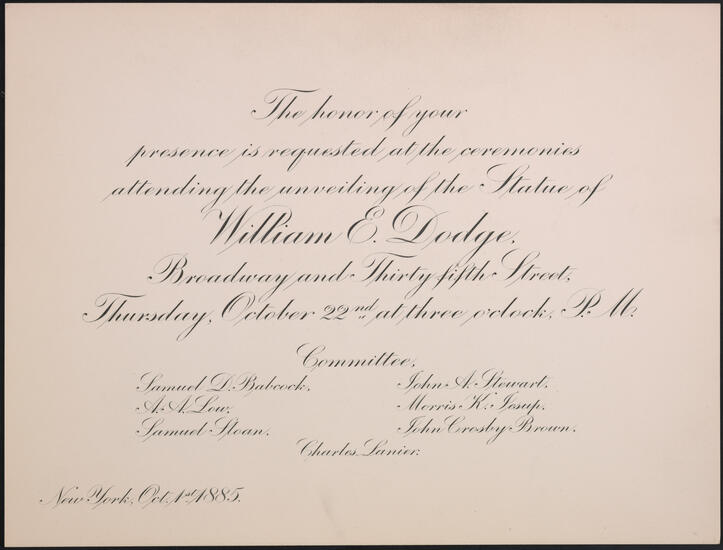 The honor of your
presence is requested at the ceremonies
attending the unveiling of the Statue of
William E. Dodge,
Broadway and Thirty fifth Street,
Thursday, October 22nd at three o'clock, P. M.
Committee,
Samuel D. Babcock, John A. Stewart,
A. A. Low, Morris K. Jesup,
Samuel Sloan, John Crosby Brown,
Charles Lanier.
New York, Oct. 1st 1885.